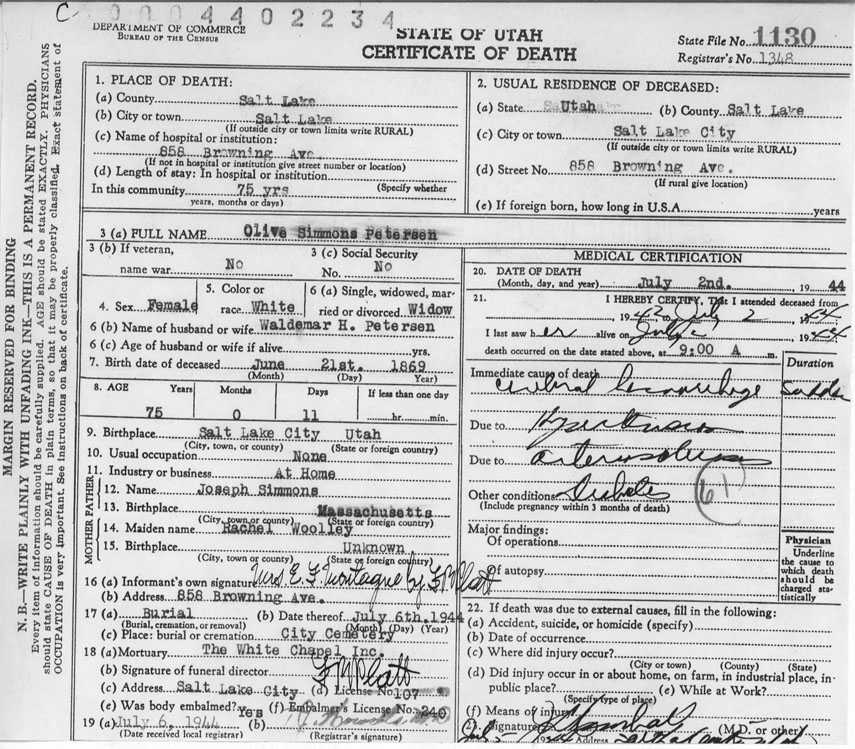 C 0004402234
DEPARTMENT OF COMMERCE
BUREAU OF THE CENSUS
STATE OF UTAH
CERTIFICATE OF DEATH
State File No. 1130
Registrar's No. 1348
MARGIN RESERVED FOR BINDING
N. B.—WRITE PLAINLY WITH UNFADING INK—THIS IS A PERMANENT RECORD.
Every item of information should be carefully supplied. AGE should be stated EXACTLY. PHYSICIANS
should state CAUSE OF DEATH in plain terms, so that it may be properly classified. Exact statement of
OCCUPATION is very important. See instructions on back of certificate.
1. PLACE OF DEATH:
(a) County Salt Lake
(b) City or town Salt Lake
(If outside city or town limits write RURAL)
(c) Name of hospital or institution:
858 Browning Ave
(If not in hospital or institution give street number or location)
(d) Length of stay: In hospital or institution
In this community 75 yrs (Specify whether
years, months or days)
2. USUAL RESIDENCE OF DECEASED:
(a) State Utah (b) County Salt Lake
(c) City or town Salt Lake City
(If outside city or town limits write RURAL)
(d) Street No. 858 Browning Ave.
(If rural give location)
(e) If foreign born, how long in U.S.A. years
3 (a) FULL NAME Olive Simmons Petersen
3 (b) If veteran, name war No
3 (c) Social Security No. No
4. Sex Female
5. Color or race White
6 (a) Single, widowed, married or divorced Widow
6 (b) Name of husband or wife Waldemar H. Petersen
6 (c) Age of husband or wife if alive yrs.
7. Birth date of deceased June 21st. 1869
(Month) (Day) Year)
8. AGE Years Months Days If less than one day
75 0 11 hr. min.
9. Birthplace Salt Lake City Utah
(City, town, or county) (State or foreign country)
10. Usual occupation None
11. Industry or business At Home
FATHER
12. Name Joseph Simmons
13. Birthplace Massachusetts
(City, town or county) (State or foreign country)
MOTHER
14. Maiden name Rachel Woolley
15. Birthplace Unknown
(City, town or county) (State or foreign country)
16 (a) Informant's own signature Mrs E. F. Montague by
(b) Address 858 Browning Ave.
17 (a) Burial (b) Date thereof July 6th.1944
(Burial, cremation, or removal) (Month) (Day) (Year)
(c) Place: burial or cremation City Cemetery
18 (a) Mortuary The White Chapel Inc.
(b) Signature of funeral director
(c) Address Salt Lake City (d) License No. 107
(e) Was body embalmed? Yes (f) Embalmer's License No. 240
19 (a) July 6, 1944 (b)
(Date received local registrar) (Registrar's signature)
MEDICAL CERTIFICATION
20. DATE OF DEATH
(Month, day, and year) July 2nd. 1944
21. I HEREBY CERTIFY, That I attended deceased from
, 1942 to July 2, 1944
I last saw her alive on July 2, 1944
death occurred on the date stated above, at 9:00 A m.
Duration
Immediate cause of death
cerebral hemorrhage sudden
Due to Hypertension
Due to arteriosclerosis
Other conditions Diabetes 61
(Include pregnancy within 3 months of death)
Major findings:
Of operations
Of autopsy
Physician
Underline
the cause to
which death
should be
charged statistically
22. If death was due to external causes, fill in the following:
(a) Accident, suicide, or homicide (specify)
(b) Date of occurrence
(c) Where did injury occur?
(City or town) (County) (State)
(d) Did injury occur in or about home, on farm, in industrial place, in
public place? (e) While at Work?
(Specify type of place)
(f) Means of injury
Signature (M.D. or other)
Address